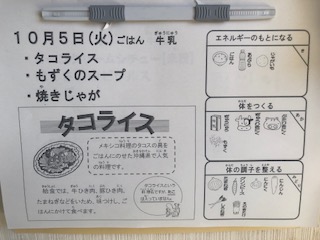 10月5日(火)ごはん 牛乳
・タコライス
・もずくのスープ
・焼きじゃが
タコライス
メキシコ料理のタコスの具を
ごはんにのせた沖縄県で人気
の料理です。
給食では、牛ひき肉、豚ひき肉、
たまねぎなどをいため、味つけし、ご
はんにかけて食べます。
タコライスという
エネルギーのもとになる
ごはん
体をつくる
体の調子を整える